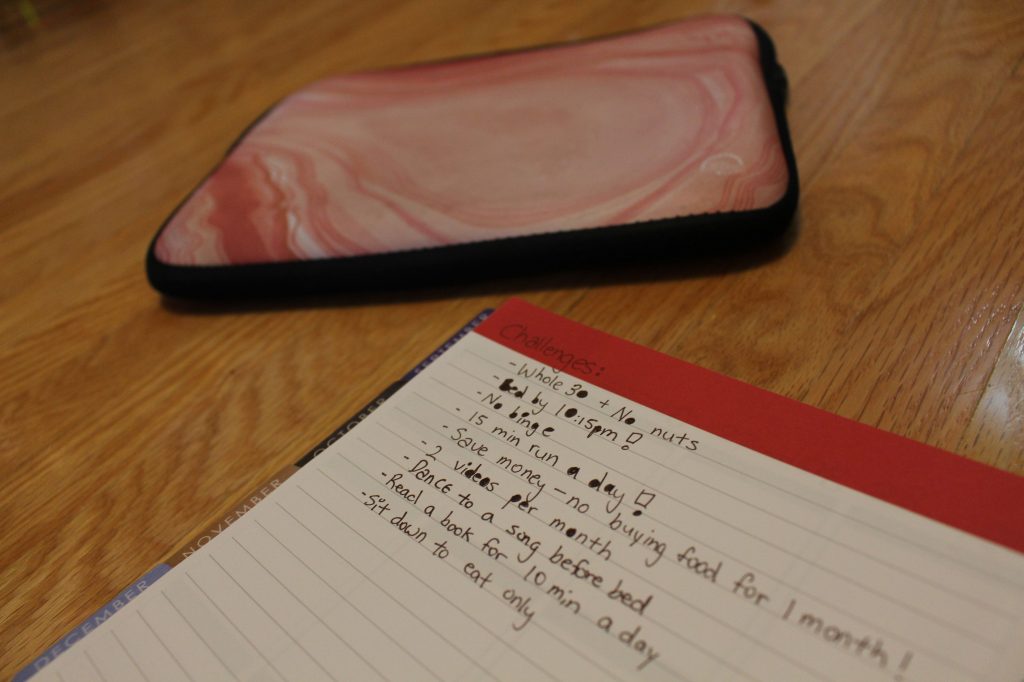 Challenges:
- Whole 30 + No nuts
- Bed by 10:15pm !
- No binge
- 15 min run a day !
- Save money - no buying food for 1 month!
- 2 videos per month
- Dance to a song before bed
- Read a book for 10 min a day
- Sit down to eat only
SEPTEMBER
OCTOBER
NOVEMBER
DECEMBER